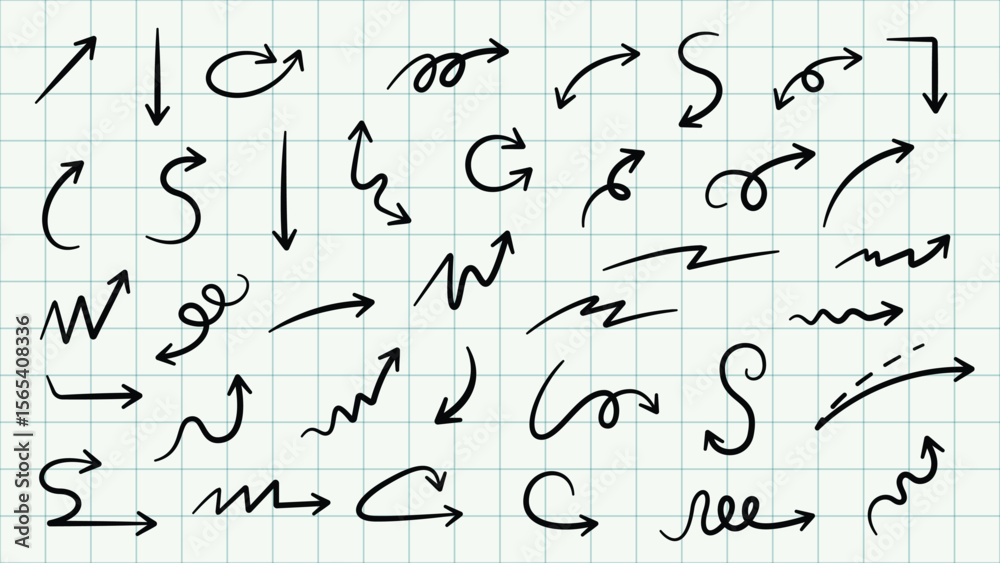 Adobe Stock | #1565408336